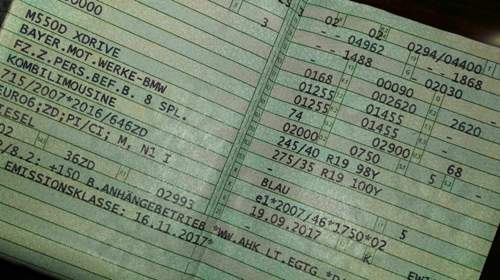 00000
3
M550D XDRIVE
BAYER.MOT.WERKE-BMW
FZ.Z.PERS.BEF.B. 8 SPL.
KOMBILIMOUSINE
715/2007*2016/646ZD
EURO6;ZD;PI/CI; M, N1 I
DIESEL
02
36ZD
02993
/8.2: +150 B.ANHÄNGEBETRIEB *WW.AHK LT.EGTG *
EMISSIONSKLASSE: 16.11.2017*
02
02
0294/04400
- - 04962
- - 1868
- - 1488
02030
0168
00090
- 2620
01255
002620
01255
01455
74
01455
68
02000
02900
0750
5
245/40 R19 98Y
275/35 R19 100Y
BLAU
5
e1*2007/46*1750*02
19.09.2017
K